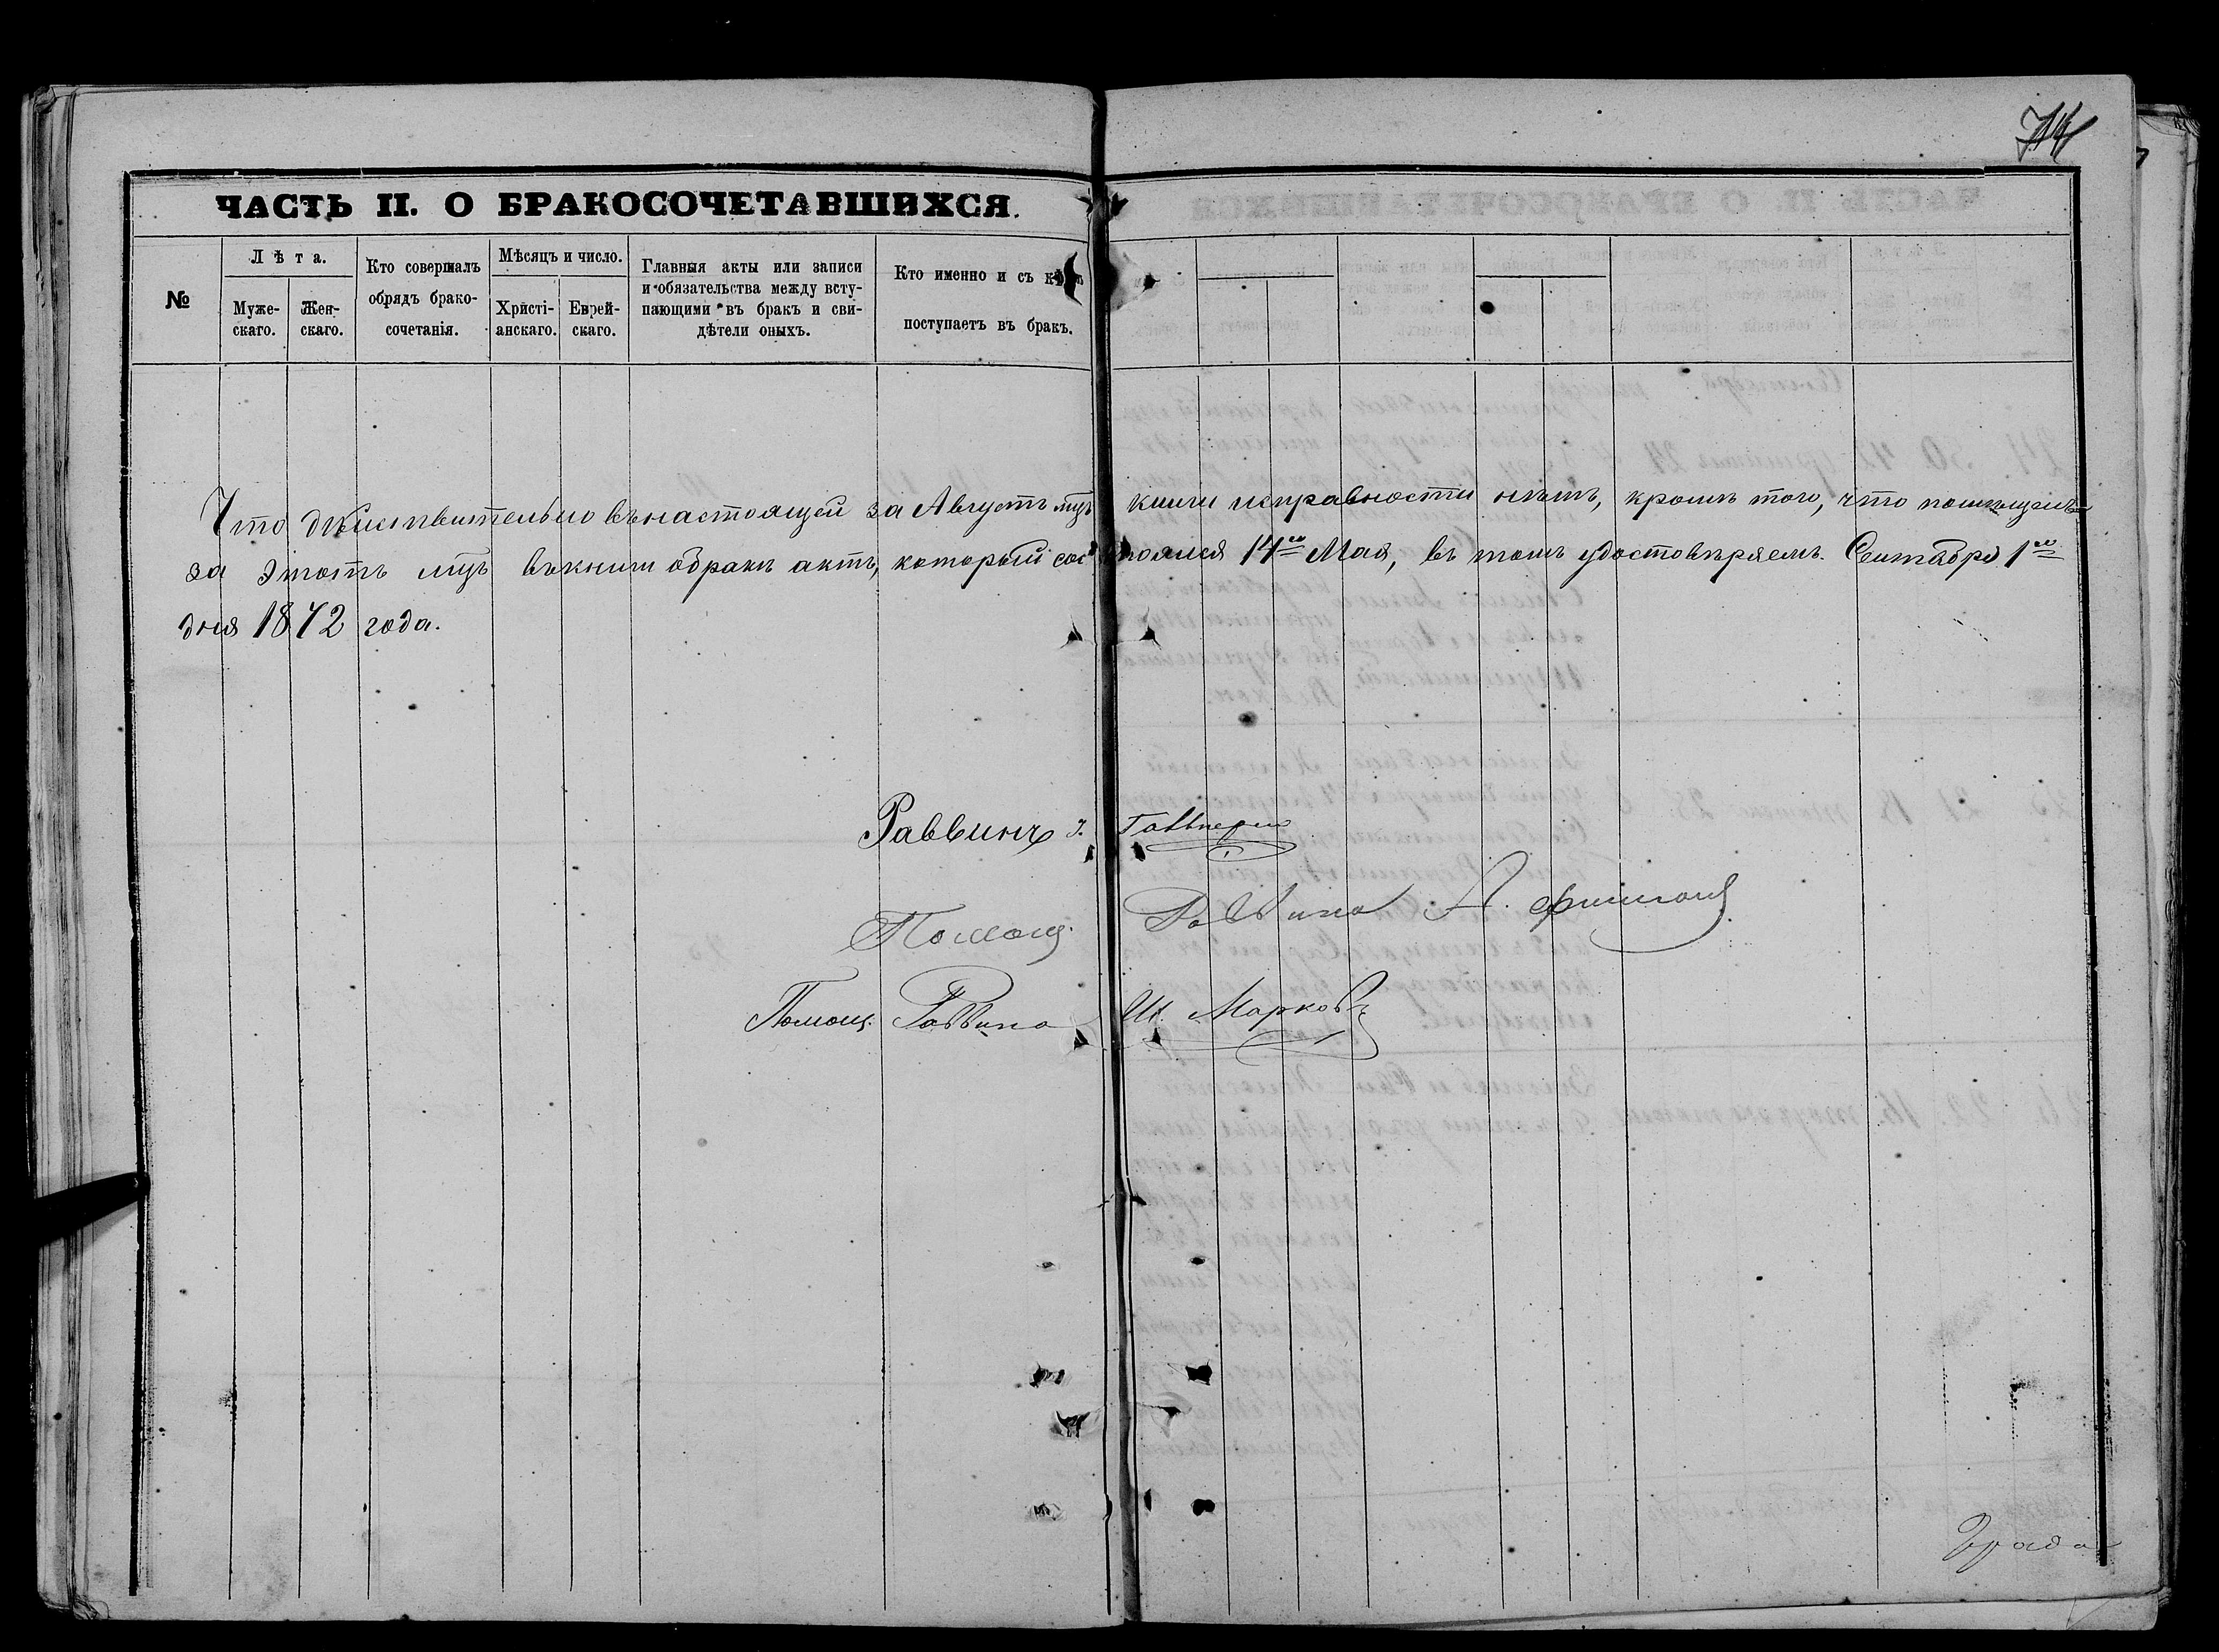 ЧАСТЬ II. О БРАКОСОЧЕТАВШИХСЯ.
№
Лѣта.
Муже-
скаго.
Жен-
скаго.
Кто совершалъ
обрядъ брако-
сочетанія.
Мѣсяцъ и число.
Христі-
анскаго.
Еврей-
скаго.
Главныя акты или записи
и обязательства между всту-
пающими въ бракъ и сви-
дѣтели оныхъ.
Кто именно и съ кѣмъ
поступаетъ въ бракъ.
Что дѣйствительно въ настоящей за Августъ мцъ книги исправности нѣтъ, кромѣ того, что помѣщенъ
за этотъ мцъ въ книги о бракѣ актъ, который состоялся 14го Мая, въ томъ удостовѣряемъ. Сентября 1го
дня 1872 года.
Раввинъ
Помощ. Раввина А. Фишманъ
Помощ. Раввина Ш. Марковъ